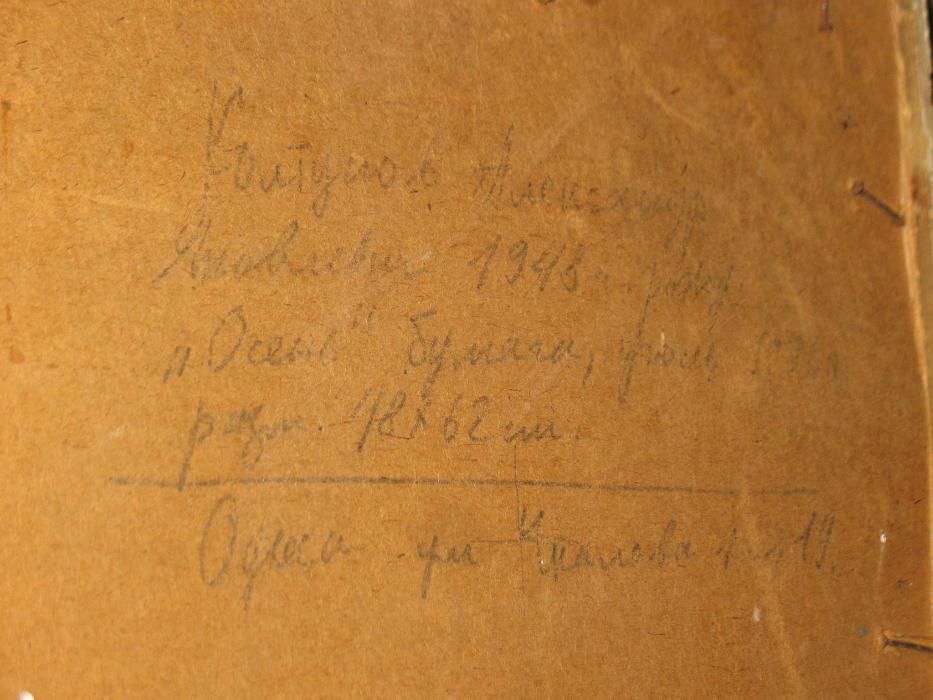 Колтунов Александр
Яковлевич 1946 г. рожд
„Осень" бумага, уголь
разм. 48х62 см.
Одесса Чкалова